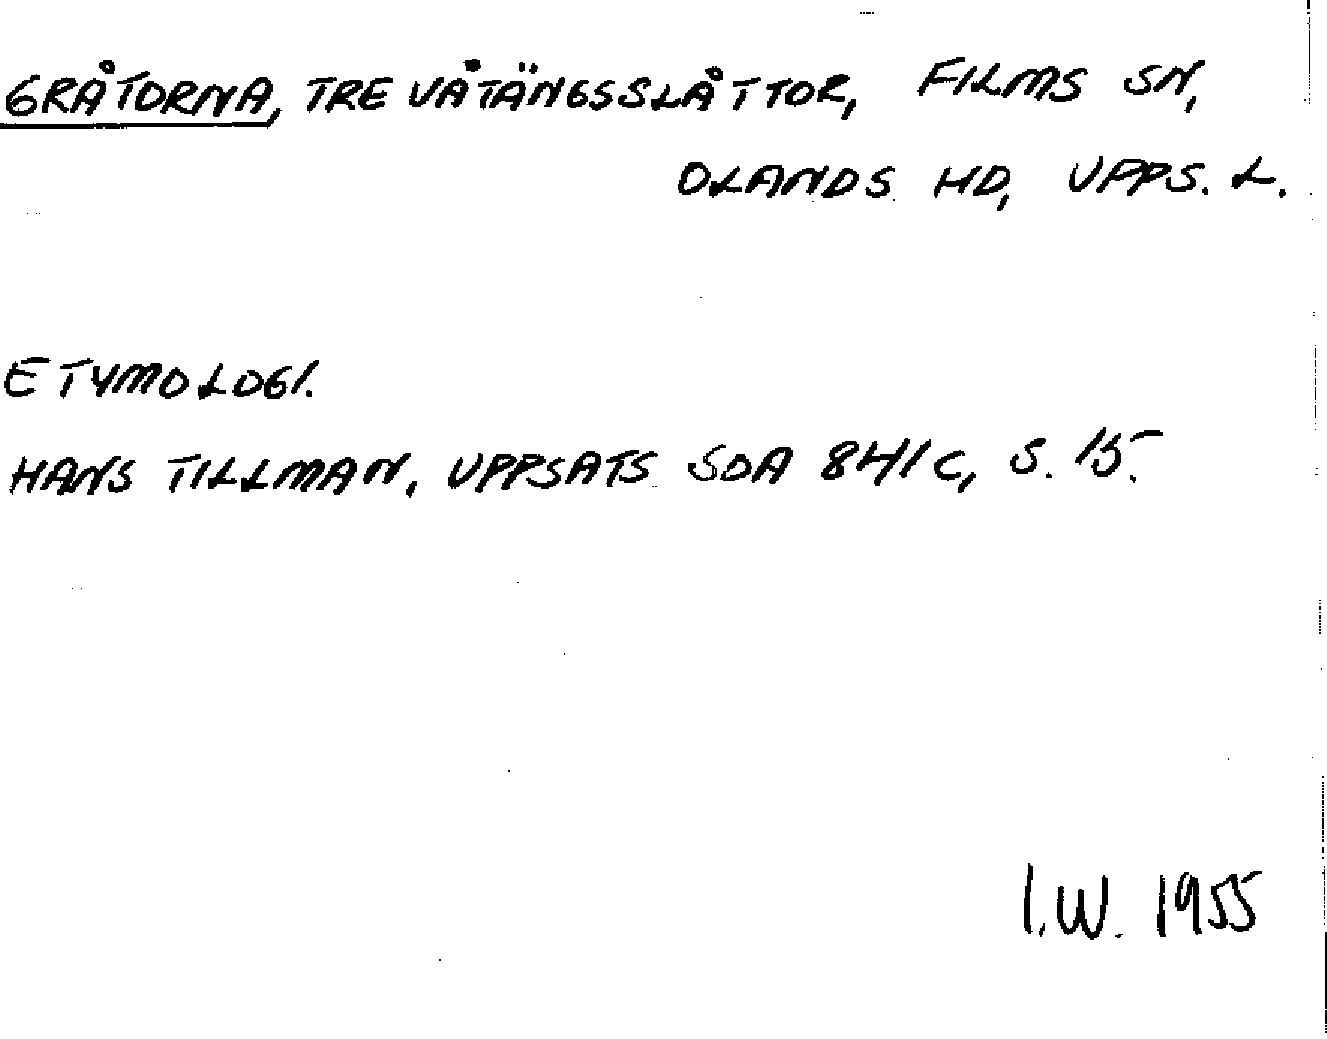 GRÅTORNA, TRE VÅTÄNGSSLÅTTOR, FILMS SN,
OLANDS HD, UPPS. L.
ETYMOLOGI.
HANS TILLMAN, UPPSATS SOA 841C, S. 15.
I.W. 1955